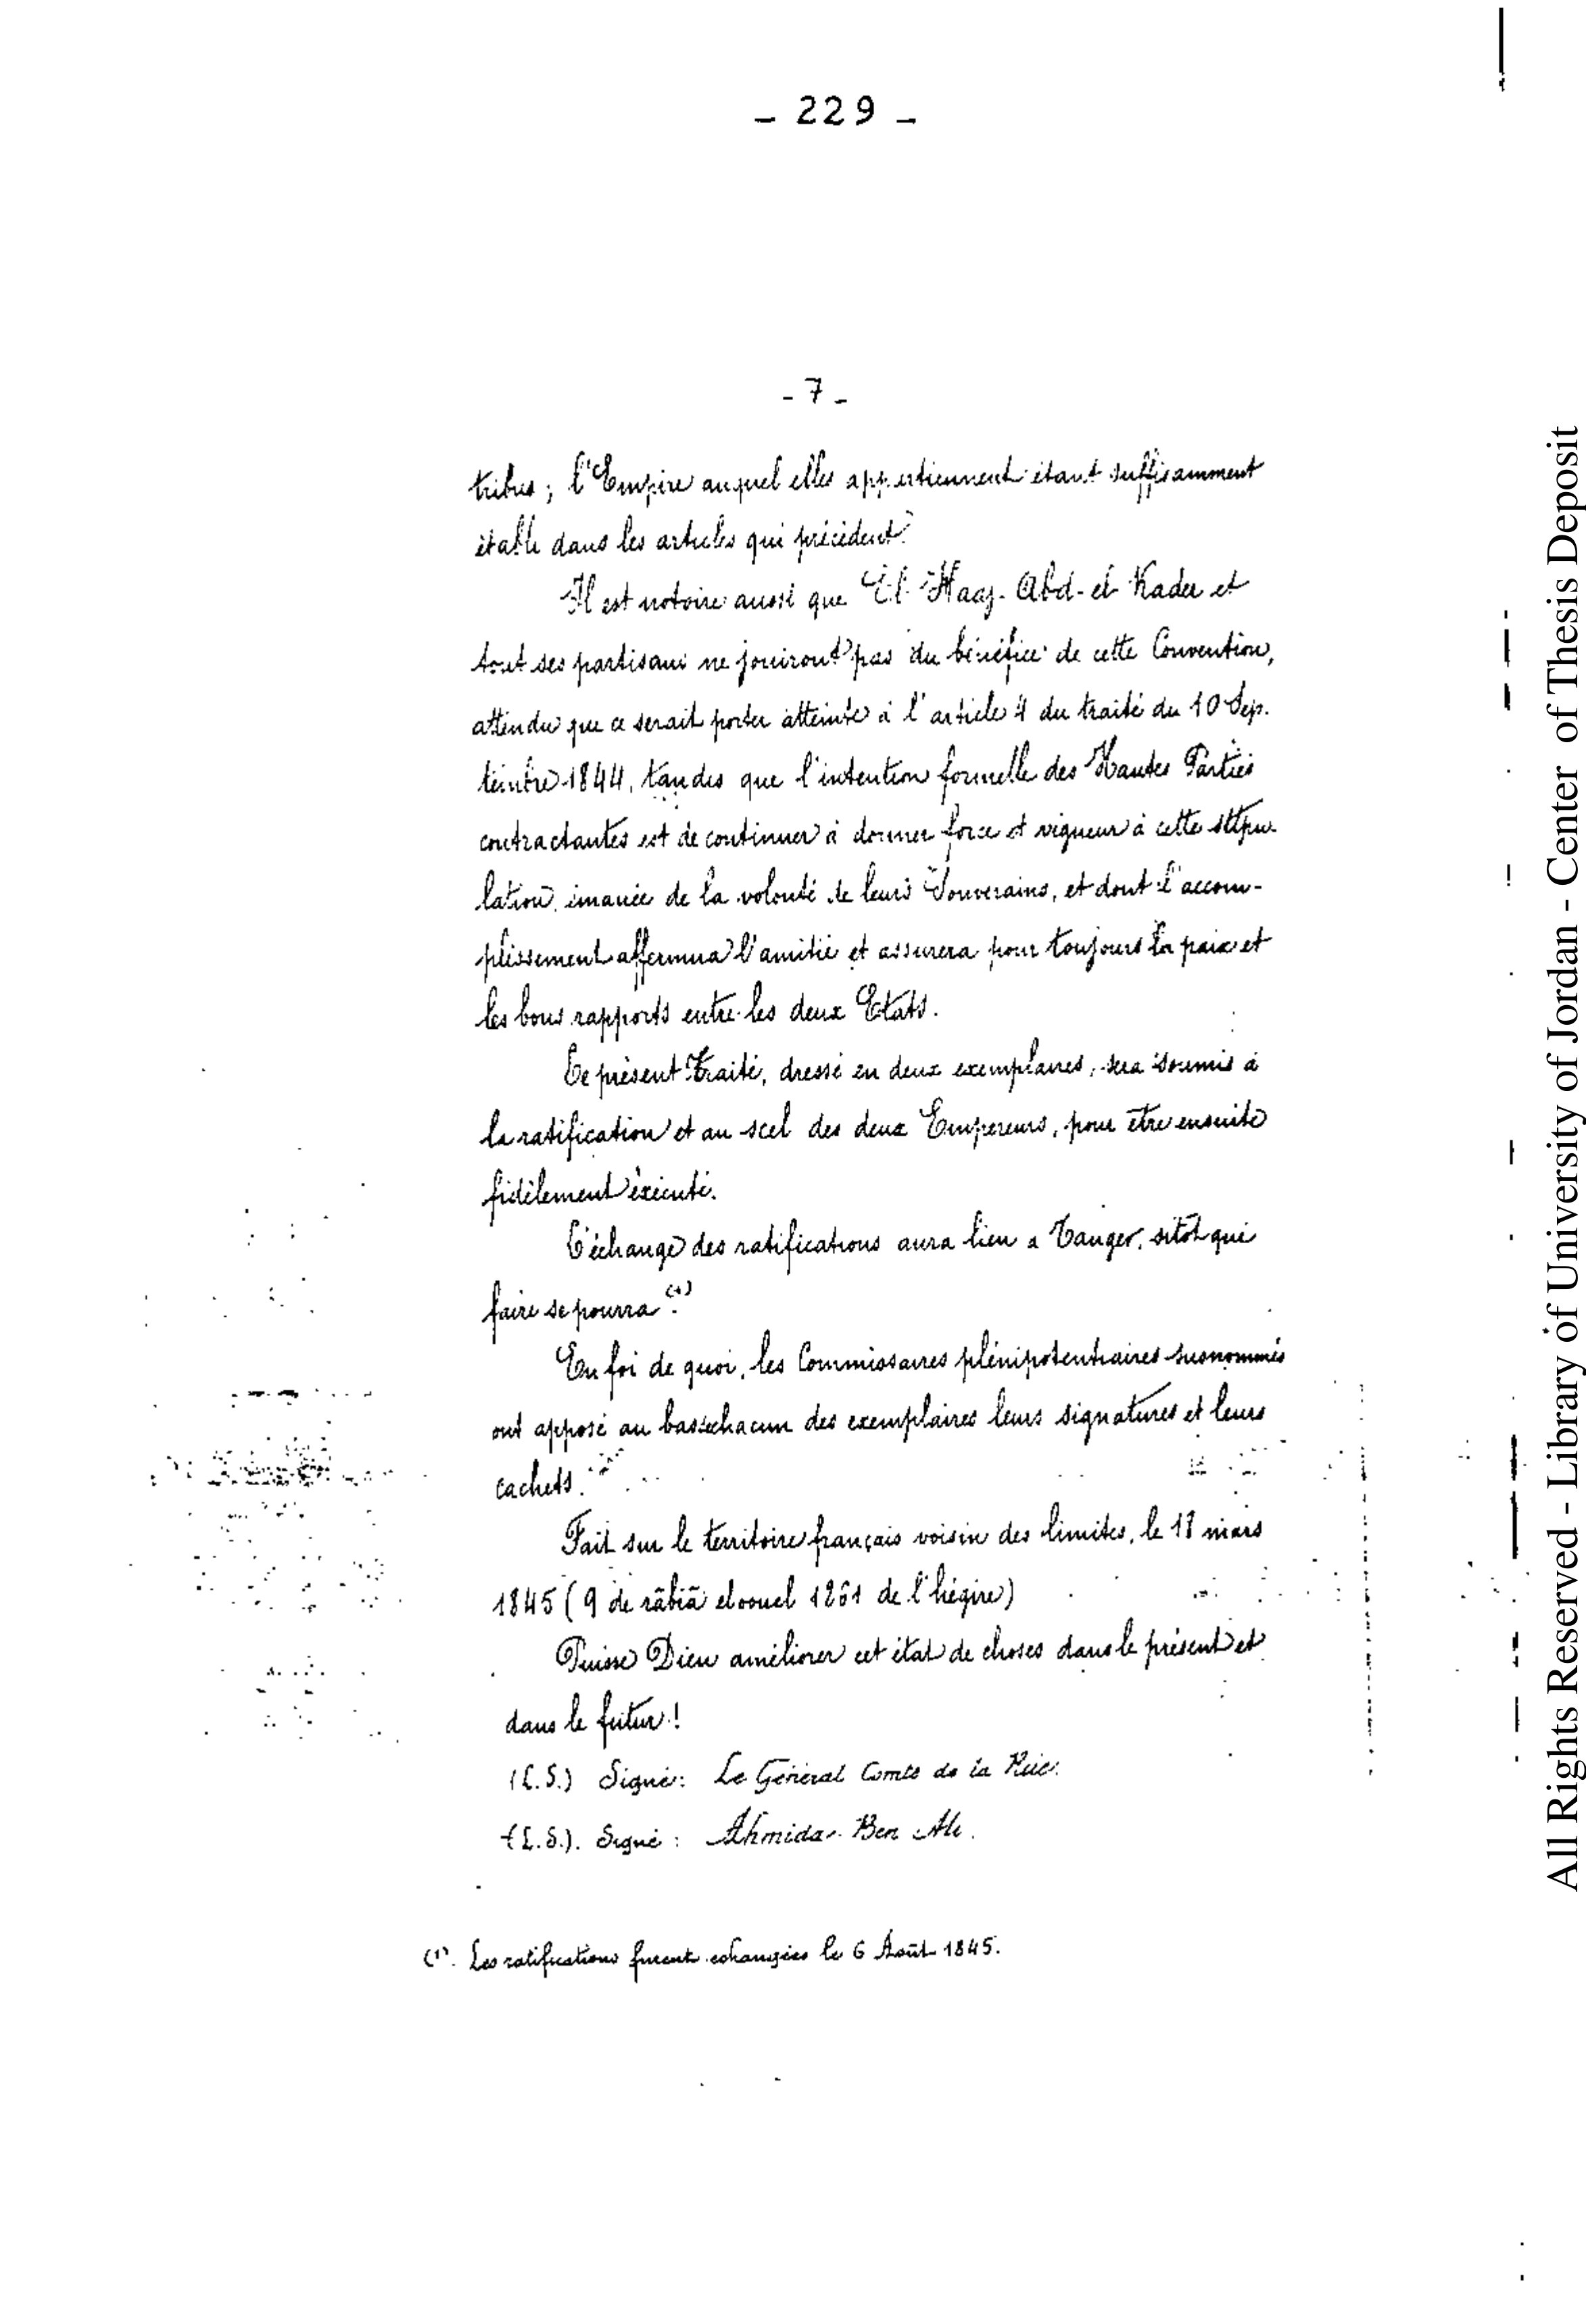 - 229 -
- 7 -
tribus ; l'Empire auquel elles appartiennent étant suffisamment
établi dans les articles qui précèdent.
Il est notoire aussi que El Haag- Abd- el- Kader et
tout ses partisans ne jouiront pas du bénéfice de cette Convention,
attendu que ce serait porter atteinte à l'article 4 du traité du 10 Sep-
tembre 1844, tandis que l'intention formelle des Hautes Parties
contractantes est de continuer à donner force et vigueur à cette stipu-
lation émanée de la volonté de leurs Souverains, et dont l'accom-
plissement affermira l'amitié et assurera pour toujours la paix et
les bons rapports entre les deux Etats.
Le présent Traité, dressé en deux exemplaires, sera soumis à
la ratification et au scel des deux Empereurs, pour être ensuite
fidèlement exécuté.
L'échange des ratifications aura lieu a Tanger, sitôt que
faire se pourra (1).
En foi de quoi, les Commissaires plénipotentiaires susnommés
ont apposé au bas chacun des exemplaires leurs signatures et leurs
cachets.
Fait sur le territoire français voisin des limites, le 18 mars
1845 ( 9 de râbiâ elouel 1261 de l'hégire)
Puisse Dieu améliorer cet état de choses dans le présent et
dans le futur !
(L.S.) Signé : Le Général Comte de la Rüe.
(L.S.). Signé : Ahmida- Ben Ali.
(1). Les ratifications furent echangées le 6 Août 1845.
All Rights Reserved - Library of University of Jordan - Center of Thesis Deposit